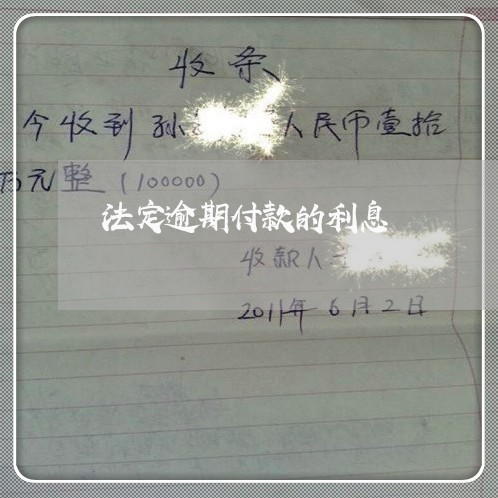 收条
今收到孙 人民币壹拾
万元整(100000)
法定逾期付款的利息
收款人
2011年6月2日